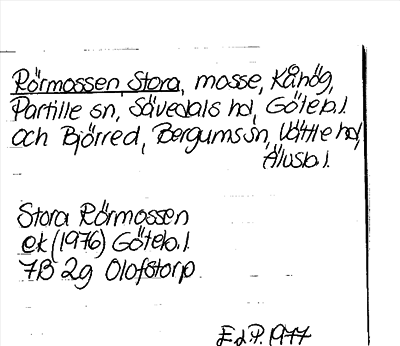 Rörmossen, Stora, mosse, Kåhög,
Partille sn, Sävedals hd, Göteb. l.
och Bjórred, Bergums sn, Vättle hd,
Älvsb. l.
Stora Rörmossen
ek (1976) Göteb. l.
7B 2g Olofstorp
E d P. 1977